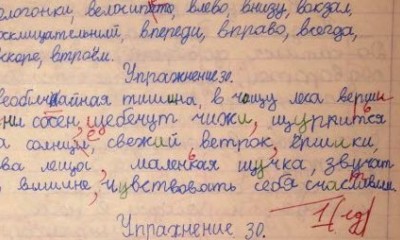 ологонки, велосипто, влево, внизу, вокзал,
осклицательный, впереди, вправо, всегда,
вскоре, втроём.
Упражнение 30.
еобычайная тишина, в чащу леса верши
ни сосен, щебечут чижи, щурится
а солнце, свежий ветрок, ёршики,
ва леща, маленкая щучка, звучат
чувствовать себя счастливим.
1(ед)
Упражнение 30.